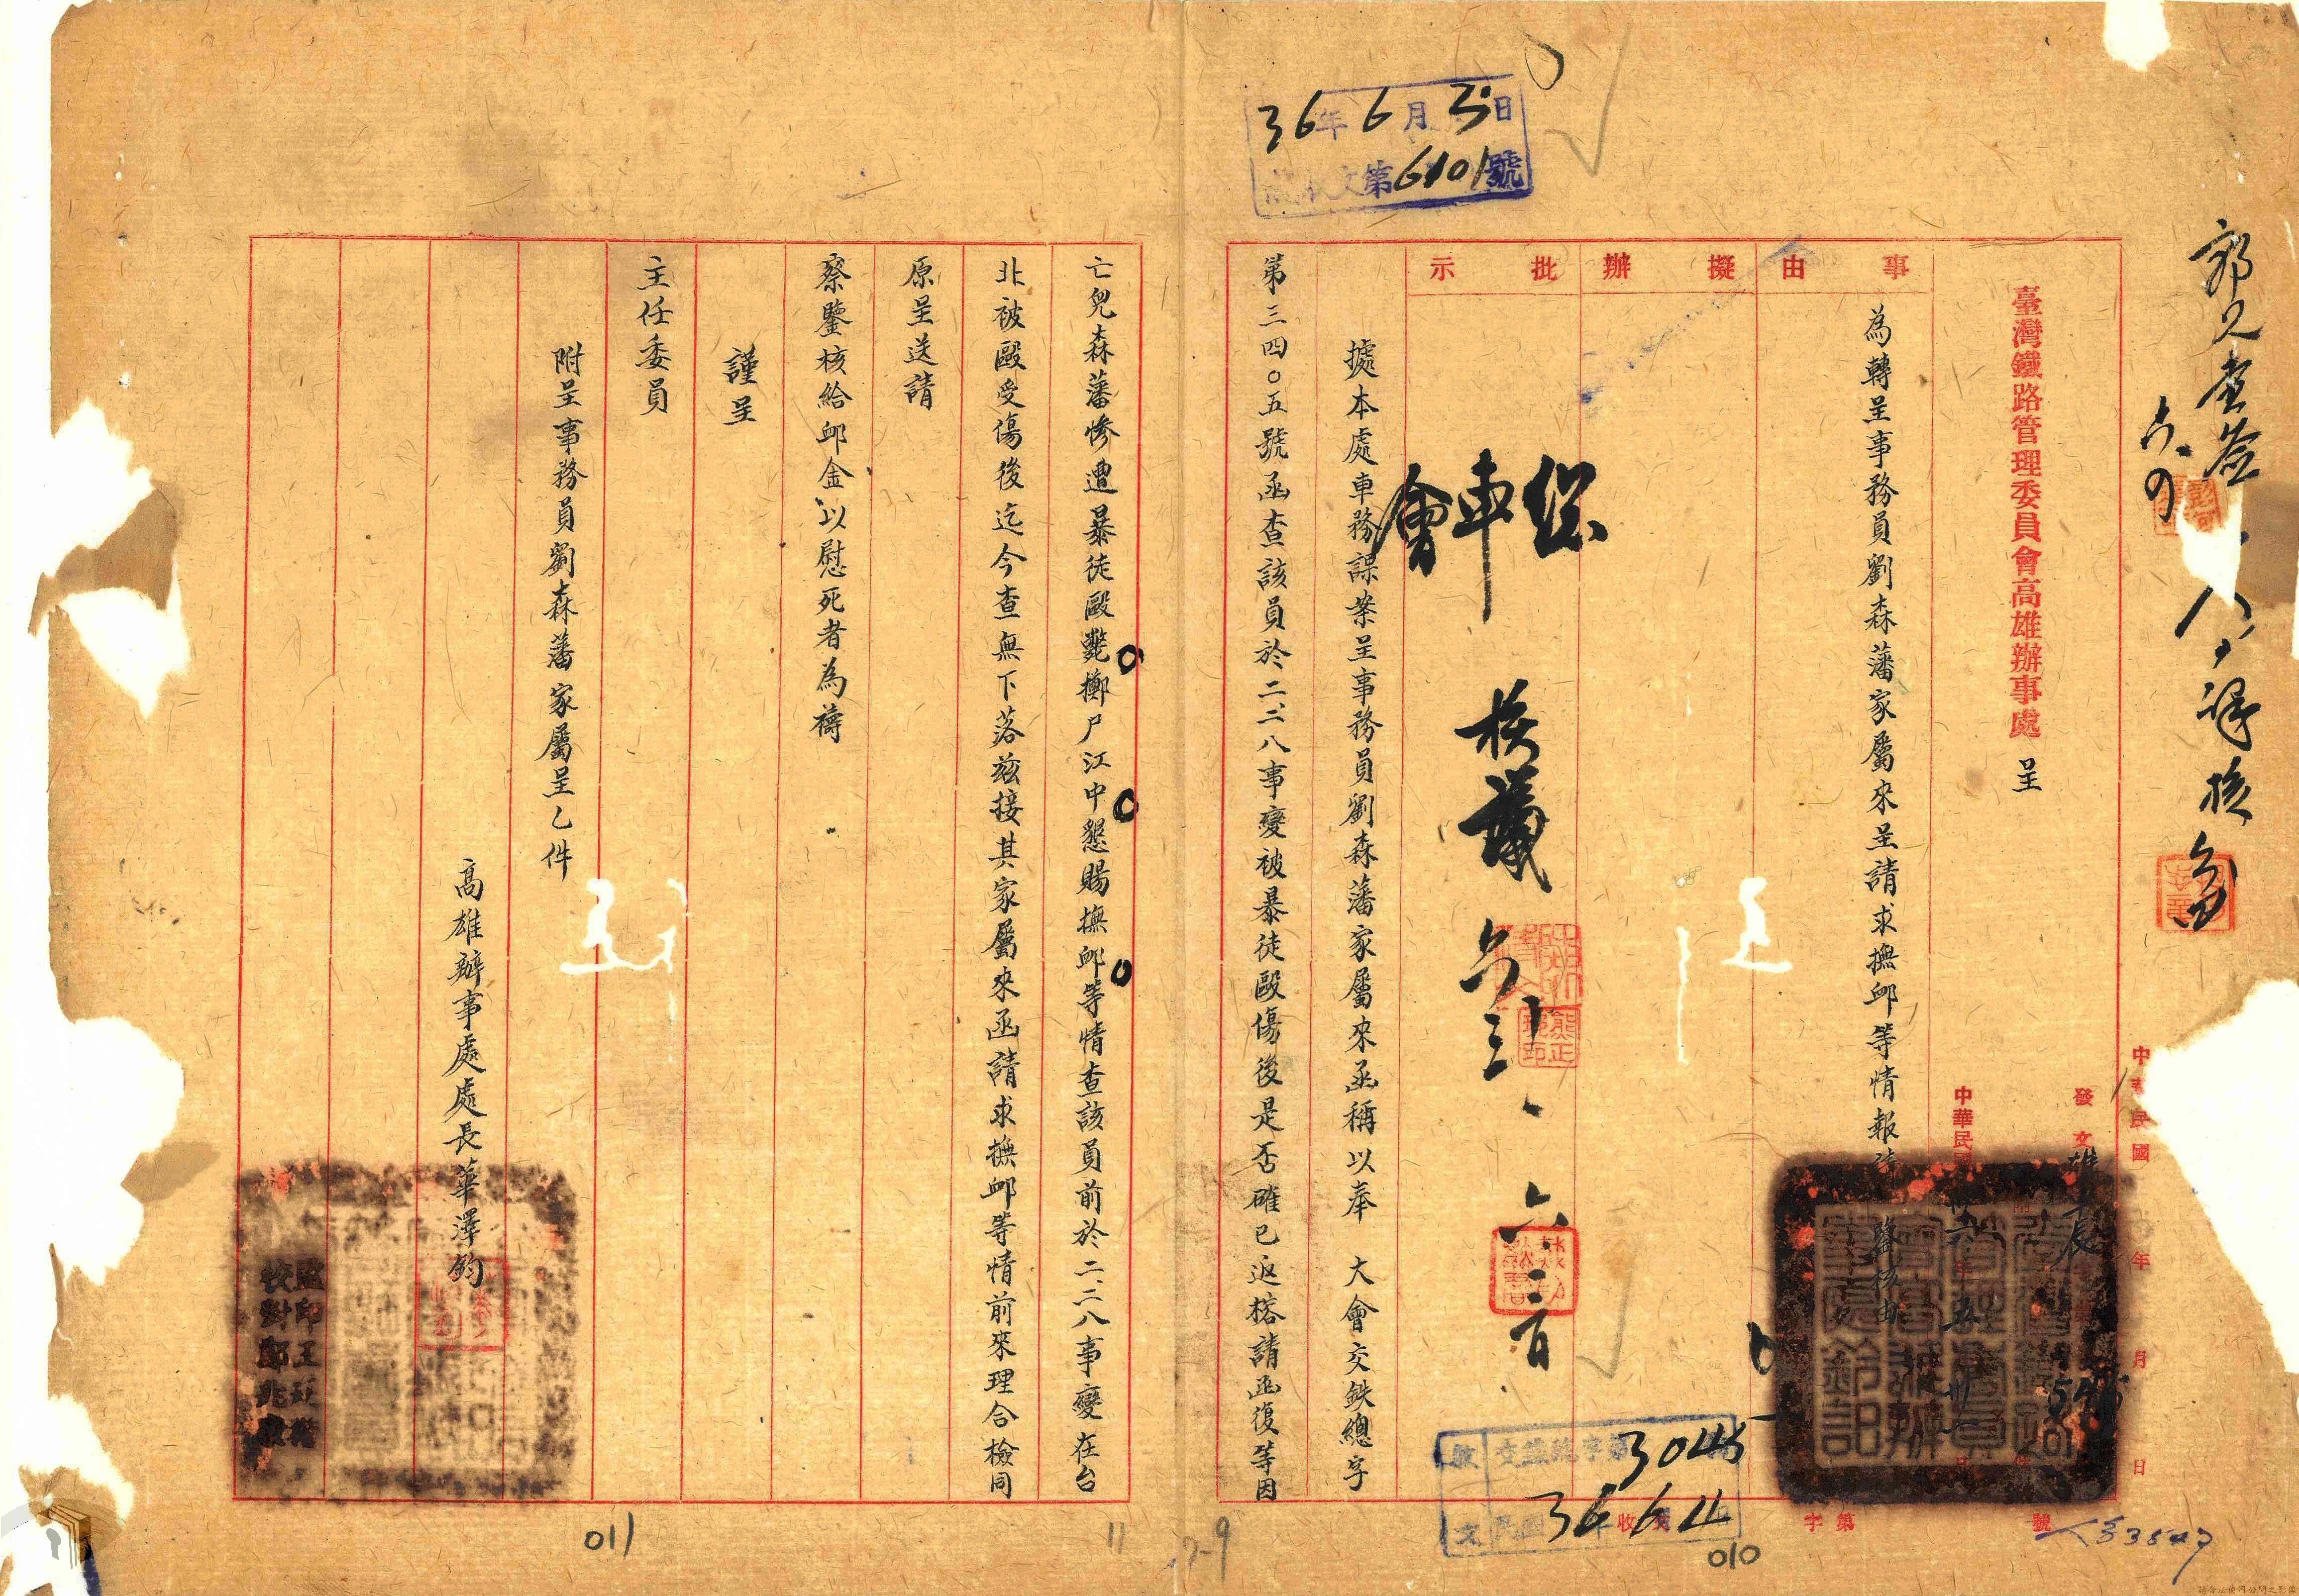 郭
核
中
民國
年
月
日
發文
號
臺灣鐵路管理委員會高雄辦事處 呈
中華民國
事 由
擬 辦
批 示
為轉呈事務員劉森藩家屬來呈請求撫卹等情報請
鑒核由
會車
核議
據本處車務課案呈事務員劉森藩家屬來函稱以奉 大會交鉄總字
第三四○五號函查該員於二、二八事變被暴徒毆傷後是否確已返榕請函復等因
亡兒森藩慘遭暴徒毆斃擲尸江中懇賜撫卹等情查該員前於二、二八事變在台
北被毆受傷後迄今查無下落茲接其家屬來函請求撫卹等情前來理合檢同
原呈送請
察鑒核給卹金以慰死者為禱
謹呈
主任委員
附呈事務員劉森藩家屬呈乙件
高雄辦事處處長華澤鈞
36年6月3日
收文第6101號
收
文
3045
36 6 4
字第
010
011
11